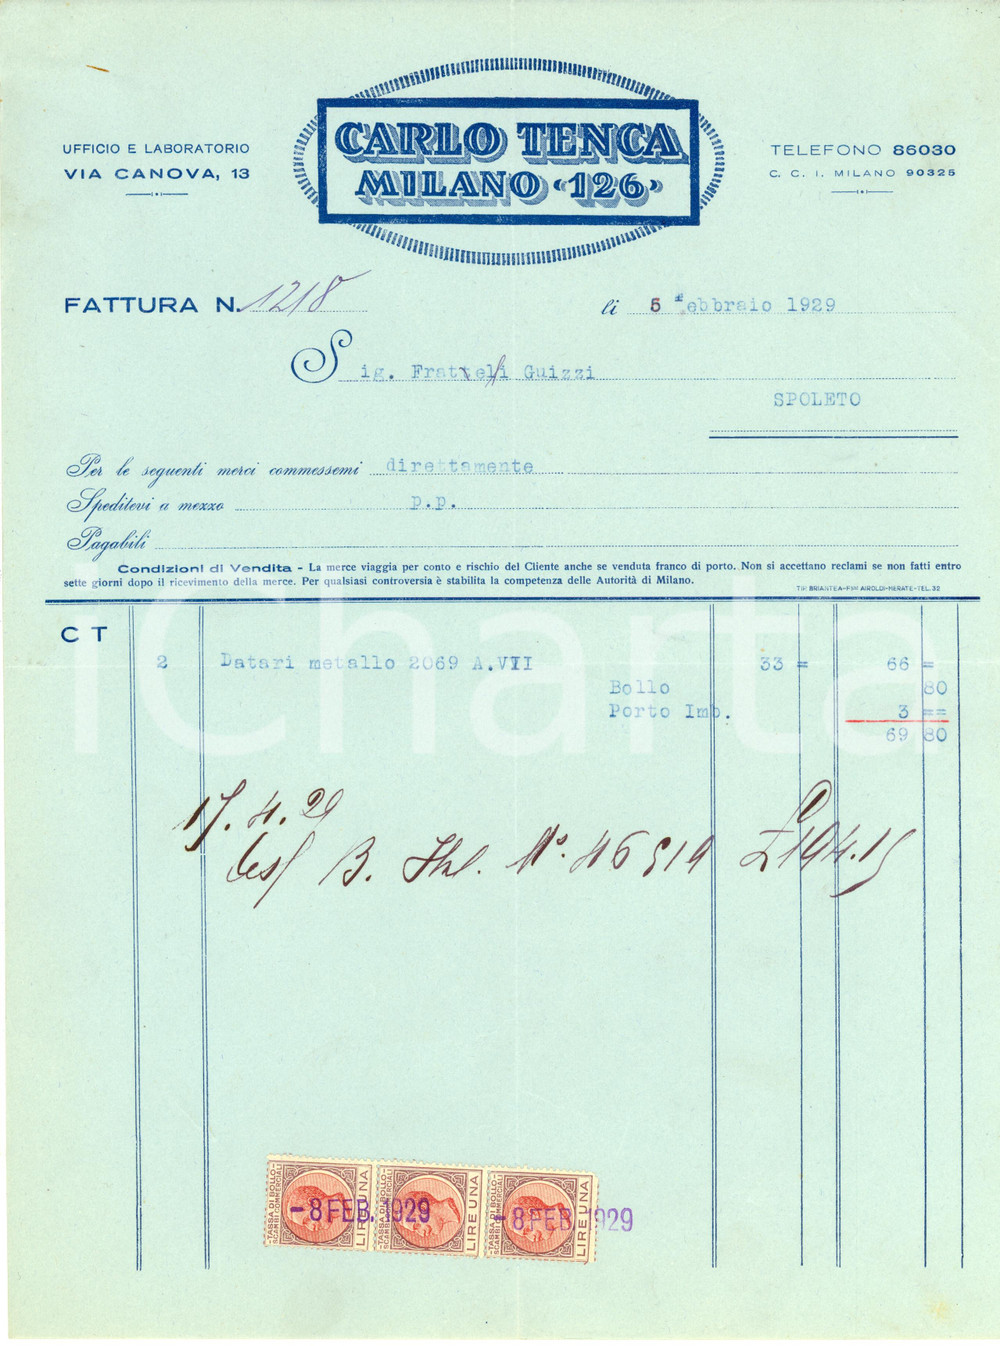 UFFICIO E LABORATORIO
VIA CANOVA, 13
CARLO TENCA
MILANO «126»
TELEFONO 86030
C. C. I. MILANO 90325
FATTURA N. 1218
li 5 febbraio 1929
Sig. Fratelli Guizzi
SPOLETO
Per le seguenti merci commessemi direttamente
Speditevi a mezzo p.p.
Pagabili
Condizioni di Vendita - La merce viaggia per conto e rischio del Cliente anche se venduta franco di porto. Non si accettano reclami se non fatti entro
sette giorni dopo il ricevimento della merce. Per qualsiasi controversia è stabilita la competenza delle Autorità di Milano.
TIP. BRIANTEA-F.lli AIROLDI-MERATE-TEL. 32
C T
2 Datari metallo 2069 A.VII 33 = 66 =
Bollo 80
Porto Imb. 3 ==
69 80
iCharta
17. 4. 29
B. N°. 46519 £ 194.15
TASSA DI BOLLO SCAMBI COMMERCIALI LIRE UNA
TASSA DI BOLLO SCAMBI COMMERCIALI LIRE UNA
TASSA DI BOLLO SCAMBI COMMERCIALI LIRE UNA
-8 FEB. 1929
-8 FEB. 1929